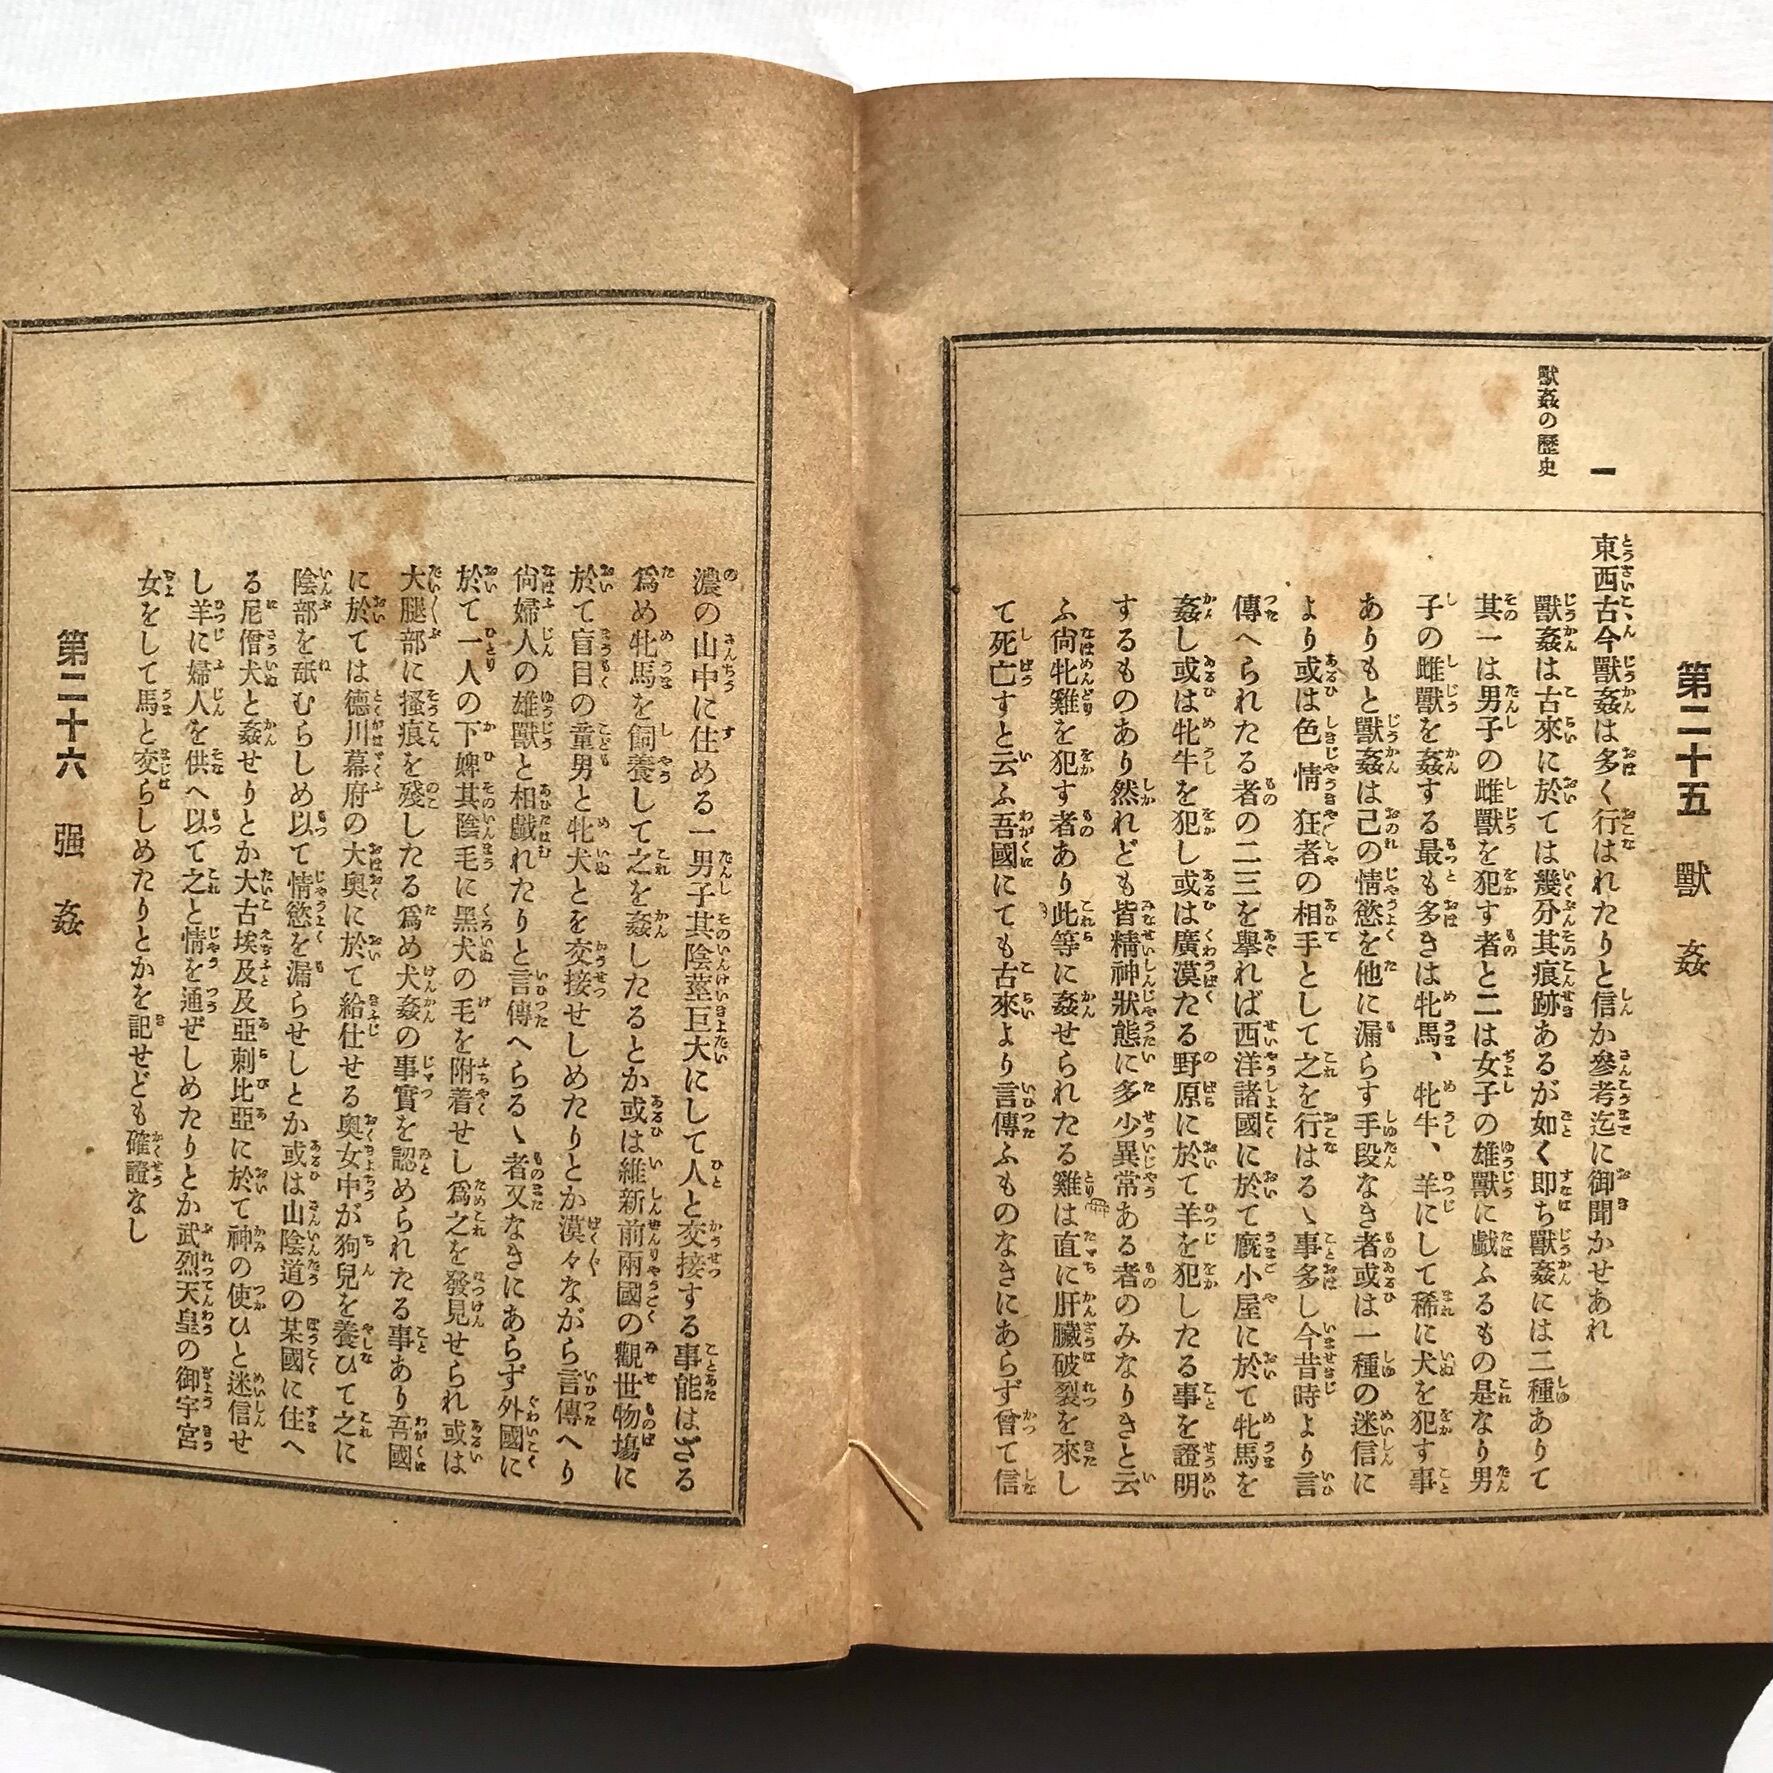 第二十五 獸姦
一
獸姦の歷史
東西古今獸姦は多く行はれたりと信か參考迄に御聞かせあれ
獸姦は古來に於ては幾分其痕跡あるが如く即ち獸姦には二種ありて
其一は男子の雌獸を犯す者と二は女子の雄獸に戯ふるもの是なり男
子の雌獸を姦する最も多きは牝馬、牝牛、羊にして稀に犬を犯す事
ありもと獸姦は己の情慾を他に漏らす手段なき者或は一種の迷信に
より或は色情狂者の相手として之を行はるゝ事多し今昔時より言
傳へられたる者の二三を擧れば西洋諸國に於て廐小屋に於て牝馬を
姦し或は牝牛を犯し或は廣漠たる野原に於て羊を犯したる事を證明
するものあり然れども皆精神狀態に多少異常ある者のみなりきと云
ふ尙牝雞を犯す者あり此等に姦せられたる雞は直に肝臟破裂を來し
て死亡すと云ふ吾國にても古來より言傳ふものなきにあらず曾て信
濃の山中に住める一男子其陰莖巨大にして人と交接する事能はざる
爲め牝馬を飼養して之を姦したるとか或は維新前兩國の觀世物塲に
於て盲目の童男と牝犬とを交接せしめたりとか漠々ながら言傳へり
尙婦人の雄獸と相戯れたりと言傳へらるゝ者又なきにあらず外國に
於て一人の下婢其陰毛に黑犬の毛を附着せし爲之を發見せられ或は
大腿部に搔痕を殘したる爲め犬姦の事實を認められたる事あり吾國
に於ては德川幕府の大奧に於て給仕せる奧女中が狗兒を養ひて之に
陰部を舐むらしめ以て情慾を漏らせしとか或は山陰道の某國に住へ
る尼僧犬と姦せりとか大古埃及及亞剌比亞に於て神の使ひと迷信せ
し羊に婦人を供へ以て之と情を通ぜしめたりとか武烈天皇の御宇宮
女をして馬と交らしめたりとかを記せども確證なし
第二十六 强姦